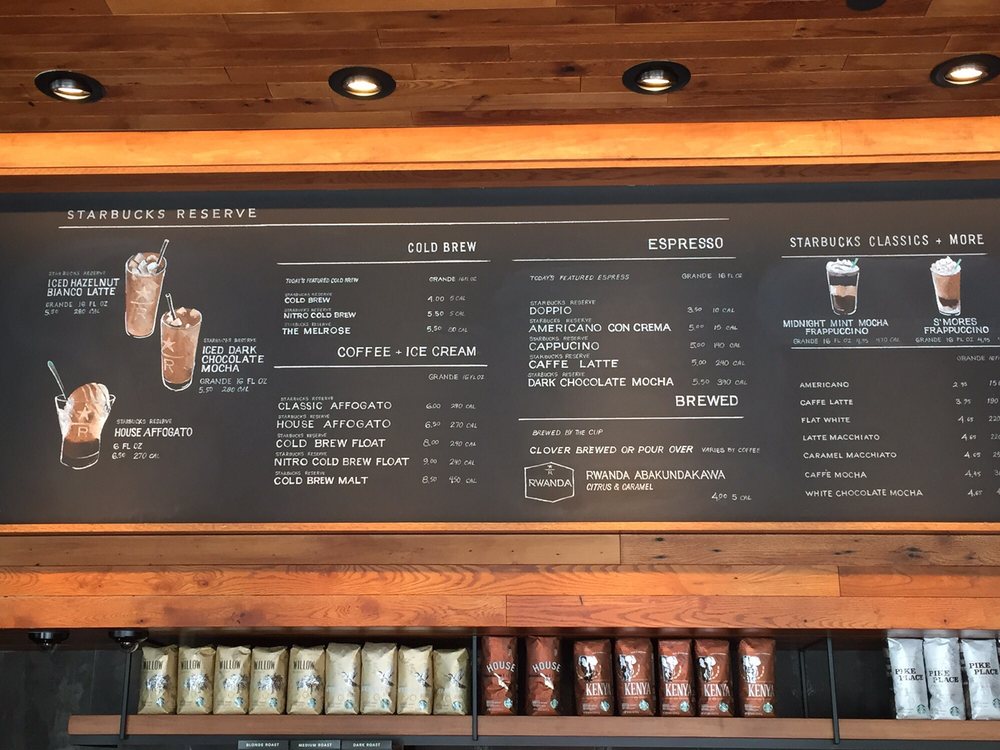 STARBUCKS RESERVE
STARBUCKS RESERVE
ICED HAZELNUT
BIANCO LATTE
GRANDE 16 FL OZ
5.50 280 CAL
STARBUCKS RESERVE
ICED DARK
CHOCOLATE
MOCHA
GRANDE 16 FL OZ
5.50 280 CAL
STARBUCKS RESERVE
HOUSE AFFOGATO
6 FL OZ
6.50 270 CAL
COLD BREW
TODAY'S FEATURED COLD BREW GRANDE 16 FL OZ
STARBUCKS RESERVE
COLD BREW 4.00 5 CAL
STARBUCKS RESERVE
NITRO COLD BREW 5.50 5 CAL
STARBUCKS RESERVE
THE MELROSE 5.50 60 CAL
COFFEE + ICE CREAM
GRANDE 16 FL OZ
STARBUCKS RESERVE
CLASSIC AFFOGATO 6.00 CAL
STARBUCKS RESERVE
HOUSE AFFOGATO 6.50 270 CAL
STARBUCKS RESERVE
COLD BREW FLOAT 8.00 CAL
STARBUCKS RESERVE
NITRO COLD BREW FLOAT 9.00 240 CAL
STARBUCKS RESERVE
COLD BREW MALT 8.50 CAL
ESPRESSO
TODAY'S FEATURED ESPRESS GRANDE 16 FL OZ
STARBUCKS RESERVE
DOPPIO 3.50 10 CAL
STARBUCKS RESERVE
AMERICANO CON CREMA 5.00 15 CAL
STARBUCKS RESERVE
CAPPUCINO 5.00 140 CAL
STARBUCKS RESERVE
CAFFE LATTE 5.00 240 CAL
STARBUCKS RESERVE
DARK CHOCOLATE MOCHA 5.50 390 CAL
BREWED
BREWED BY THE CUP
CLOVER BREWED OR POUR OVER VARIES BY COFFEE
R
RWANDA
RWANDA ABAKUNDAKAWA
CITRUS & CARAMEL
4.00 5 CAL
STARBUCKS CLASSICS + MORE
MIDNIGHT MINT MOCHA
FRAPPUCCINO
GRANDE 16 FL OZ 4.95 470 CAL
S'MORES
FRAPPUCCINO
GRANDE 16 FL OZ 4.95
GRANDE
AMERICANO 2.95
CAFFE LATTE 3.75 190
FLAT WHITE 4.65 220
LATTE MACCHIATO 4.65
CARAMEL MACCHIATO 4.65
CAFFÈ MOCHA 4.45
WHITE CHOCOLATE MOCHA 4.65
WILLOW
WILLOW
WILLOW
WILLOW
WILLOW
HOUSE
HOUSE
KENYA
KENYA
KENYA
KENYA
KENYA
PIKE
PLACE
PIKE
PLACE
PIKE
PLACE
BLONDE ROAST
MEDIUM ROAST
DARK ROAST